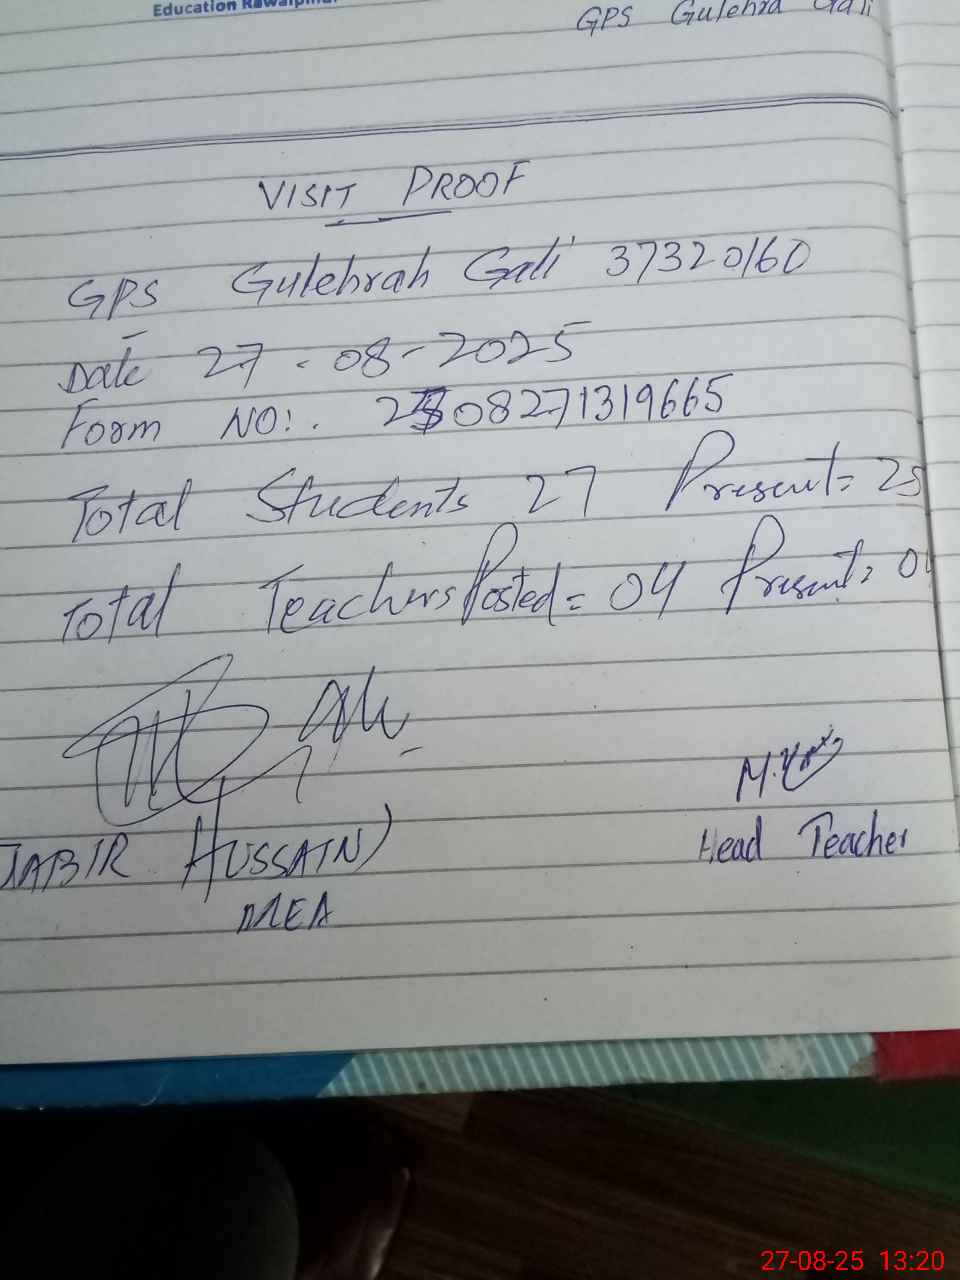 Education Rawalpindi
GPS Gulehra Gali
VISIT PROOF
GPS Gulehrah Gali 37320160
Date 27-08-2025
Form NO:. 2508271319665
Total Students 27 Present= 25
Total Teachers Posted= 04 Present= 04
JABIR HUSSAIN)
MEA
Head Teacher
27-08-25 13:20